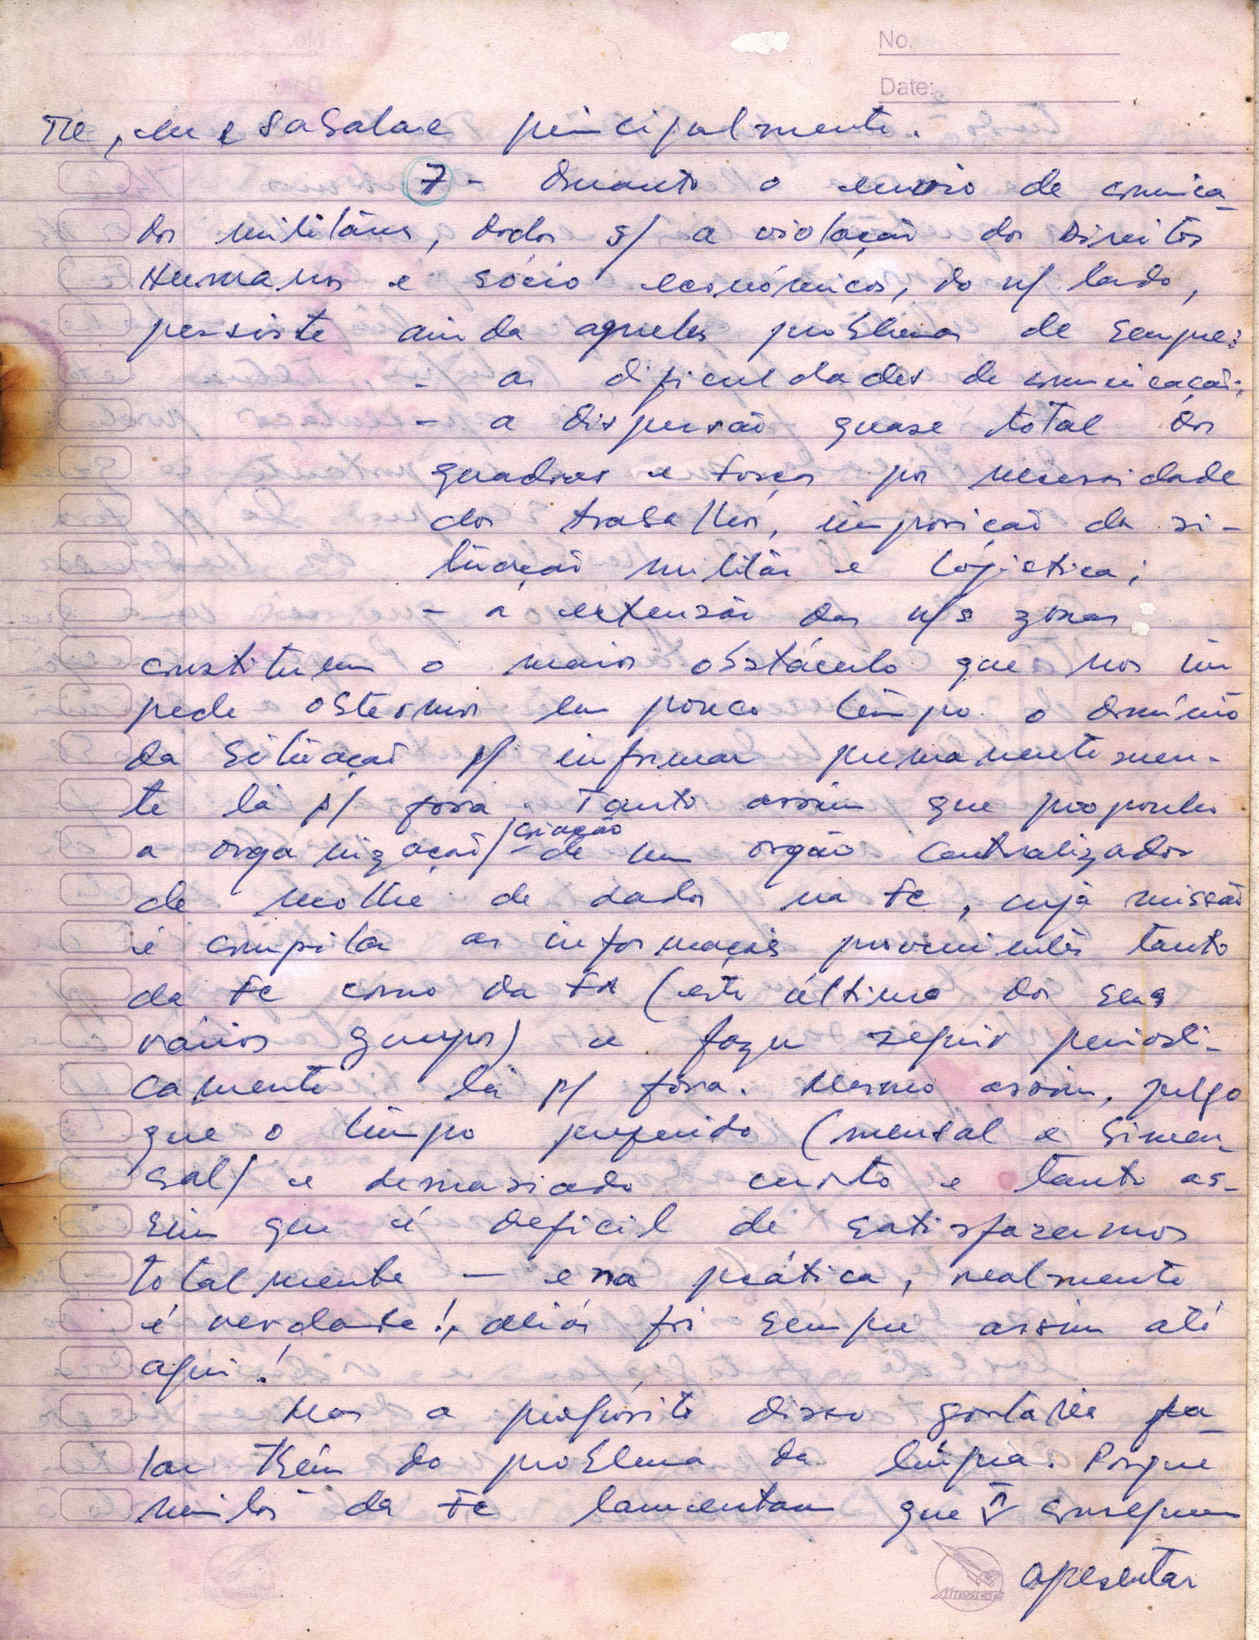 No.
Date:
principalmente.
7 - Quanto o envio de comunica-
dos militares, dados s/ a violação dos Direitos
Humanos e sócio económicos, do n/ lado,
persiste ainda aqueles problemas de sempre:
- as dificuldades de comunicação;
- a dispersão quase total dos
quadros e forças por necessidade
dos trabalhos, imposição da si-
tuação militar e logística;
- a extensão das n/s zonas
constituem o maior obstáculo que nos im
pede obtermos em pouco tempo o domínio
da situação p/ informar permanentemen-
te lá p/ fora. Tanto assim que proponho
a organização/criação de um orgão centralizador
de recolha de dados na FC, cuja missão
é compilar as informações provenientes tanto
da FC como da FN (este último dos seus
vários grupos) e fazer seguir periodi-
camente lá p/ fora. Mesmo assim, julgo
que o tempo preferido (mensal e bimen-
sal) é demasiado curto e tanto as-
sim que é dificil de satisfazermos
totalmente - e na prática, realmente
é verdade!, aliás foi sempre assim até
aqui!
Mas a propósito disso gostaria fa-
lar tbém do problema da língua. Porque
muitos da FC lamentam que ñ conseguem
apresentar